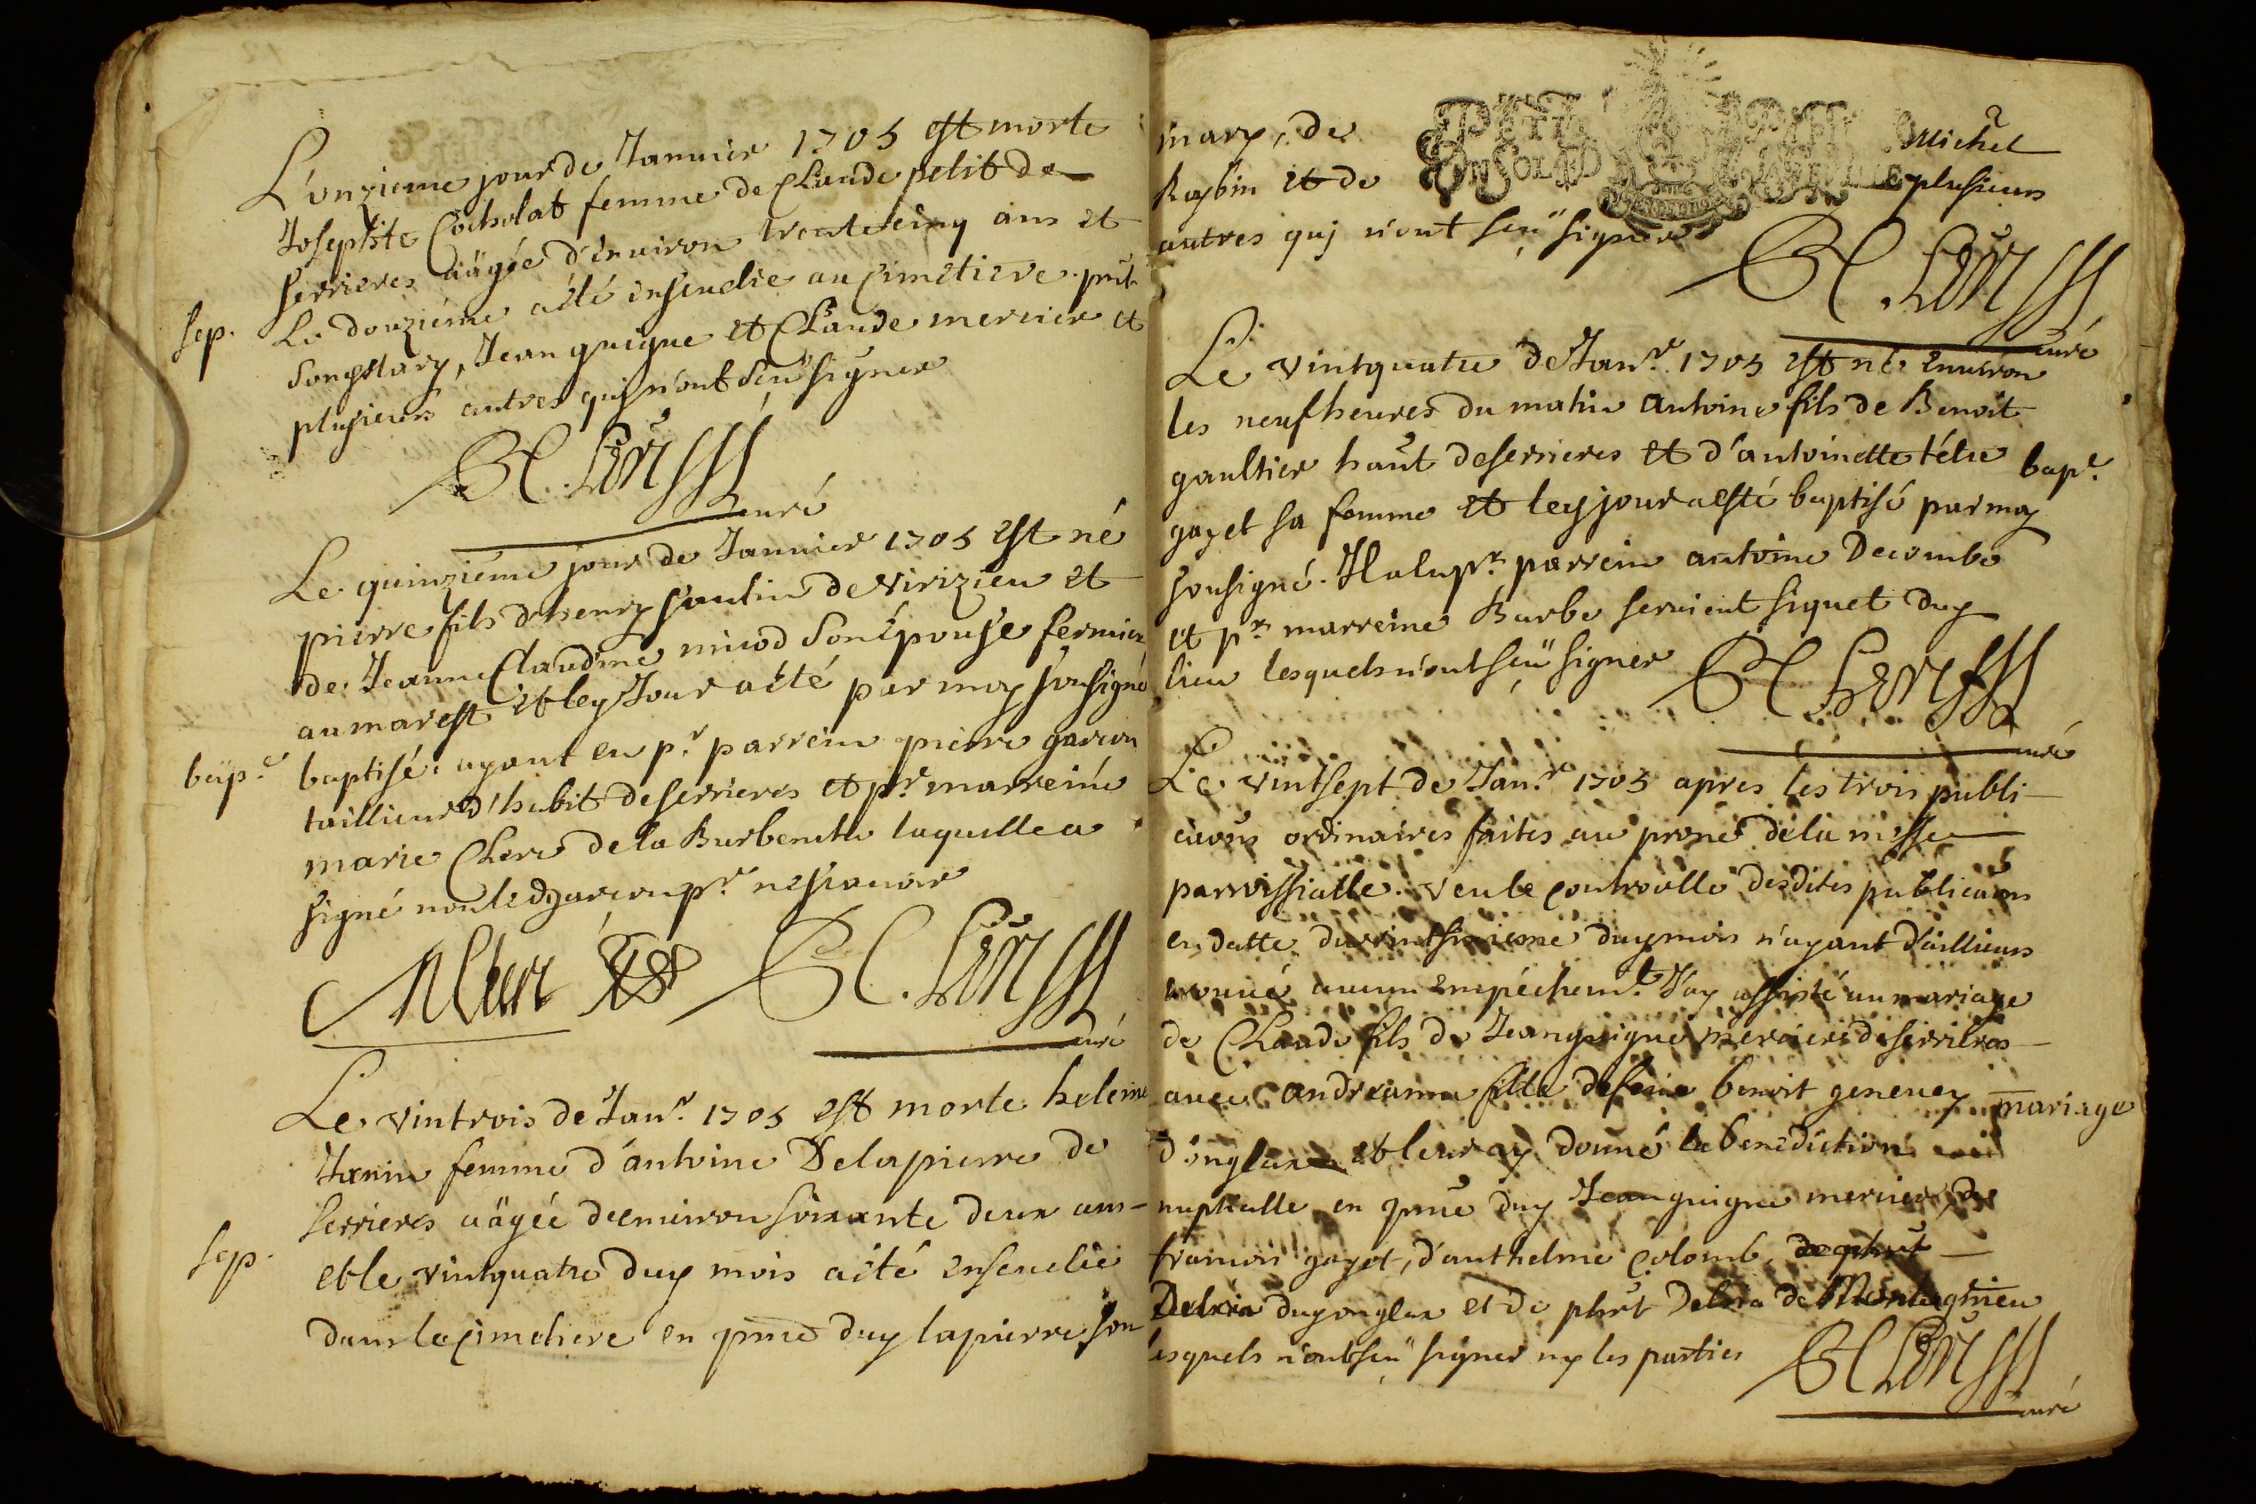 L'onzieme jour de Januier 1705 est morte
Josephte Cocholat femme de Claude petit de
serrieres aägée d'enuiron trente cinq ans et
sep.
Le douziéme a été enseuelie au cimetiere. pnt
son mary, Jean guigue et Claude mercier et
plusieurs autres quj n'ont sçeü signer
curé
Le quinziéme jour de Januier 1705 est né
pierre fils d'henry paulin de virizieu et
de Jeanne Claudine miod son épouse fermier
au marest et ley Jour a été par moy sousigné
bap.e
baptisé: ayant eu pr parrein pierre garcon
taillieur d'habit de serrieres et pr marreine
marie Clere de la Burbenche laquelle a
signé non led garcon pr ne scauoir
curé
Le vintrois de Janr. 1705 est morte heleine
Janin femme d'antoine Delapierre de
serrieres aägée d'enuiron soixante deux ans
sep.
et le vintquatre duy mois a été enseuelie
dans le cimetiere en pnce duy lapierre son
mary, de Michel
Roybin et de plusieurs
autres quj n'ont sçeü signer
curé
Le vintquatre de Janr. 1705 est né enuiron
les neuf heures du matin antoine fils de Benoit
gaultier haut de serrieres et d'antoinette
bap.e
gayet sa femme et ley jour a esté baptisé par moy
sousigné. Il a eu pr. parrein antoine Decombe
et pr marreine Barbe seruient siquet duy
lieu lesquels n'ont sçeü signer
curé
Le vintsept de Janr. 1705 apres les trois publi-
caons ordinaires faites au prone de la messe
parroissialle. veu le controolle desdites publicaons
en datte du vintsixieme duy mois n'ayant d'aillieurs
trouué aucun empéchemt. J'ay assisté au mariage
de Claude fils de Jean guigue mercier de serrieres
auec andreanne fille de feu benoit geneuey
mariage
d'onglas et leur ay donné la benediction
nuptialle en pnce duy Jean guigue mercier, de
francois gayet, d'anthelme colomb
duy onglas et de phrt Delera de Montagnieu
lesquels n'ont sçeü signer ny les parties
curé